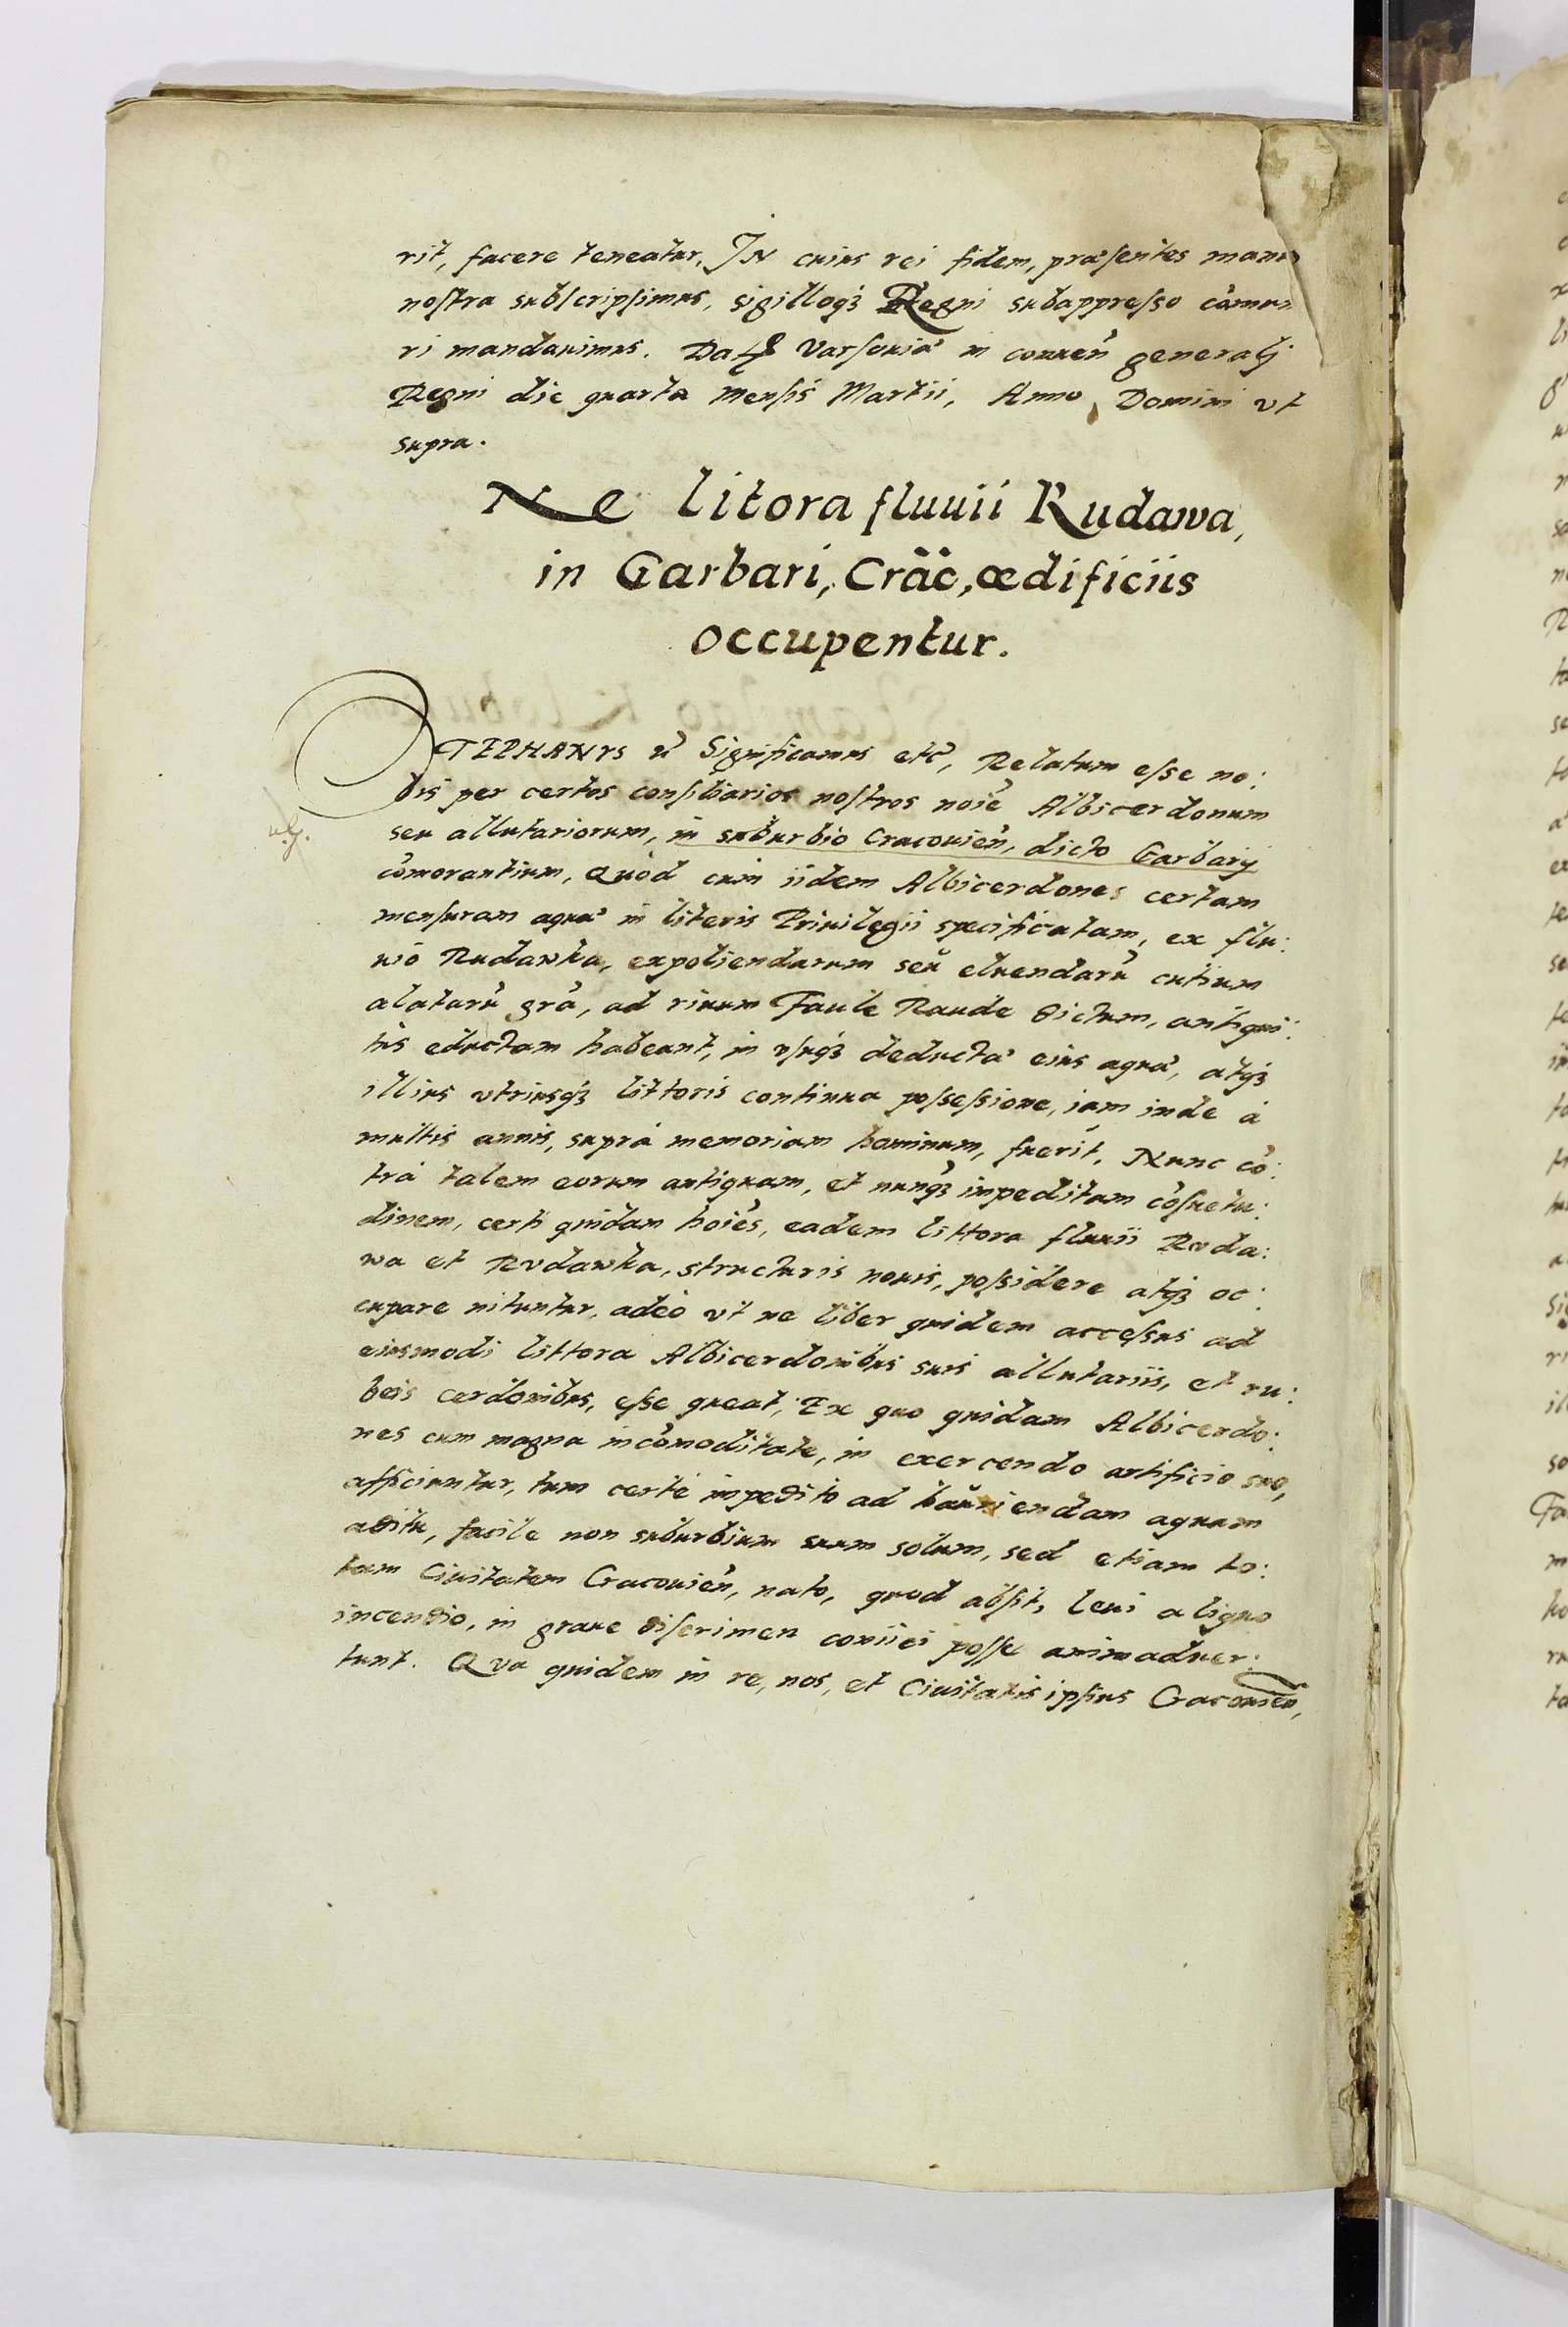 rit, facere teneatur. IN cuius rei fidem, præsentes manu
nostra subscripsimus, sigilloq3 Regni subappresso cõmuni
ri mandauimus. Dat Varsouiæ in conuen generalj
Regni die quarta Mensis Martii, Anno Domini vt
supra.
Ne litora fluuii Rudawa,
in Garbari, Crac̃, ædificiis
occupentur.
STEPHANVS Significamus etc, Relatum esse no:
bis per certos consiliarios nostros noie Albicerdonum
seu allutariorum, in suburbio Cracouien, dicto Garbarÿ
cõmorantium, Quòd cum iidem Albicerdones certam
mensuram aquæ in literis Priuilegii specificatam, ex flu:
uio Rudawka, expoliendarum seu eluendarũ cutium
alutarũ grã, ad riuum Faule Raude dictum, antiqui:
tùs eductam habeant, in vsuq3 deductæ eius aquæ, atq3
illius vtriusq3 littoris continua possessione, iam inde à
multis annis, suprà memoriam hominum, fuerit, Nunc cõ:
trà talem eorum antiquam, et nunq3 impeditam cõsuetu:
dinem, certi quidam hoies, eadem littora fluuii Ruda:
wa et Rudawka, structuris nouis, possidere atq3 oc:
cupare nituntur, adeò vt ne liber quidem accessus ad
eiusmodi littora Albicerdonibus suis allutariis, et ru:
beis cerdonibus, esse queat, Ex quo quidam Albicerdo:
nes cum magna incõmoditate, in exercendo artificio suo,
afficiuntur, tum certè impedito ad hauriendam aquam
aditu, facile non suburbium suum solum, sed etiam to:
tam Ciuitatem Cracouien, nato, quod absit, leui aliquo
incendio, in graue discrimen coniici posse animaduer:
tunt. Qua quidem in re, nos, et Ciuitatis ipsius Cracouien,